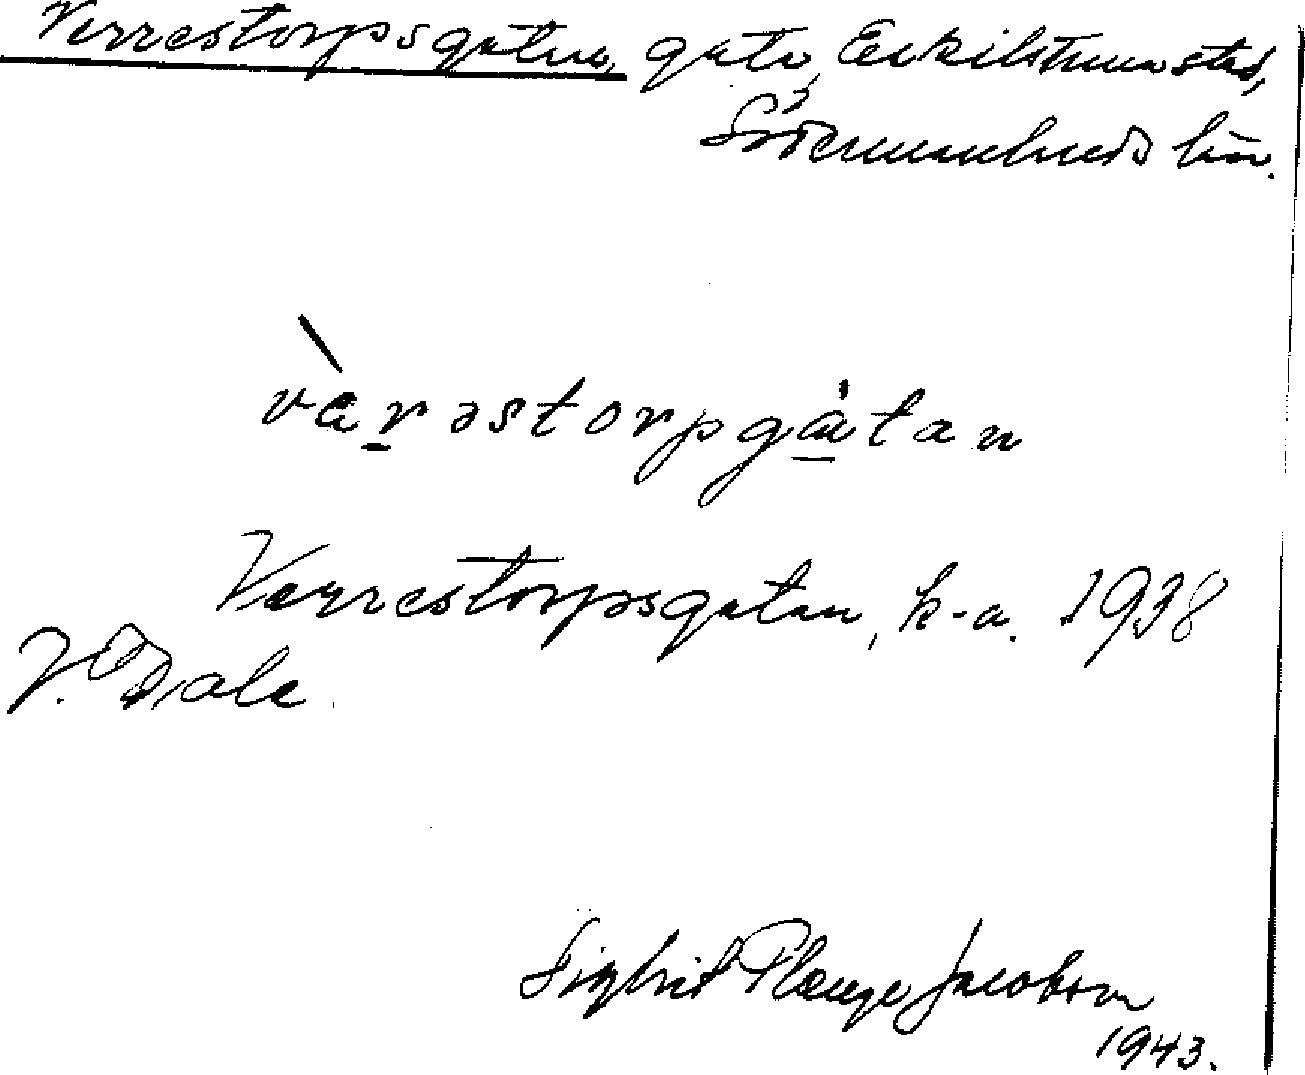 Verrestorpsgatan, gata, Eskilstuna stad,
Södermanlands län.
vàrəstorpgátan
Verrestorpsgatan, k-a. 1938
J. Dale
Sigbrit Plænge Jacobson
1943.